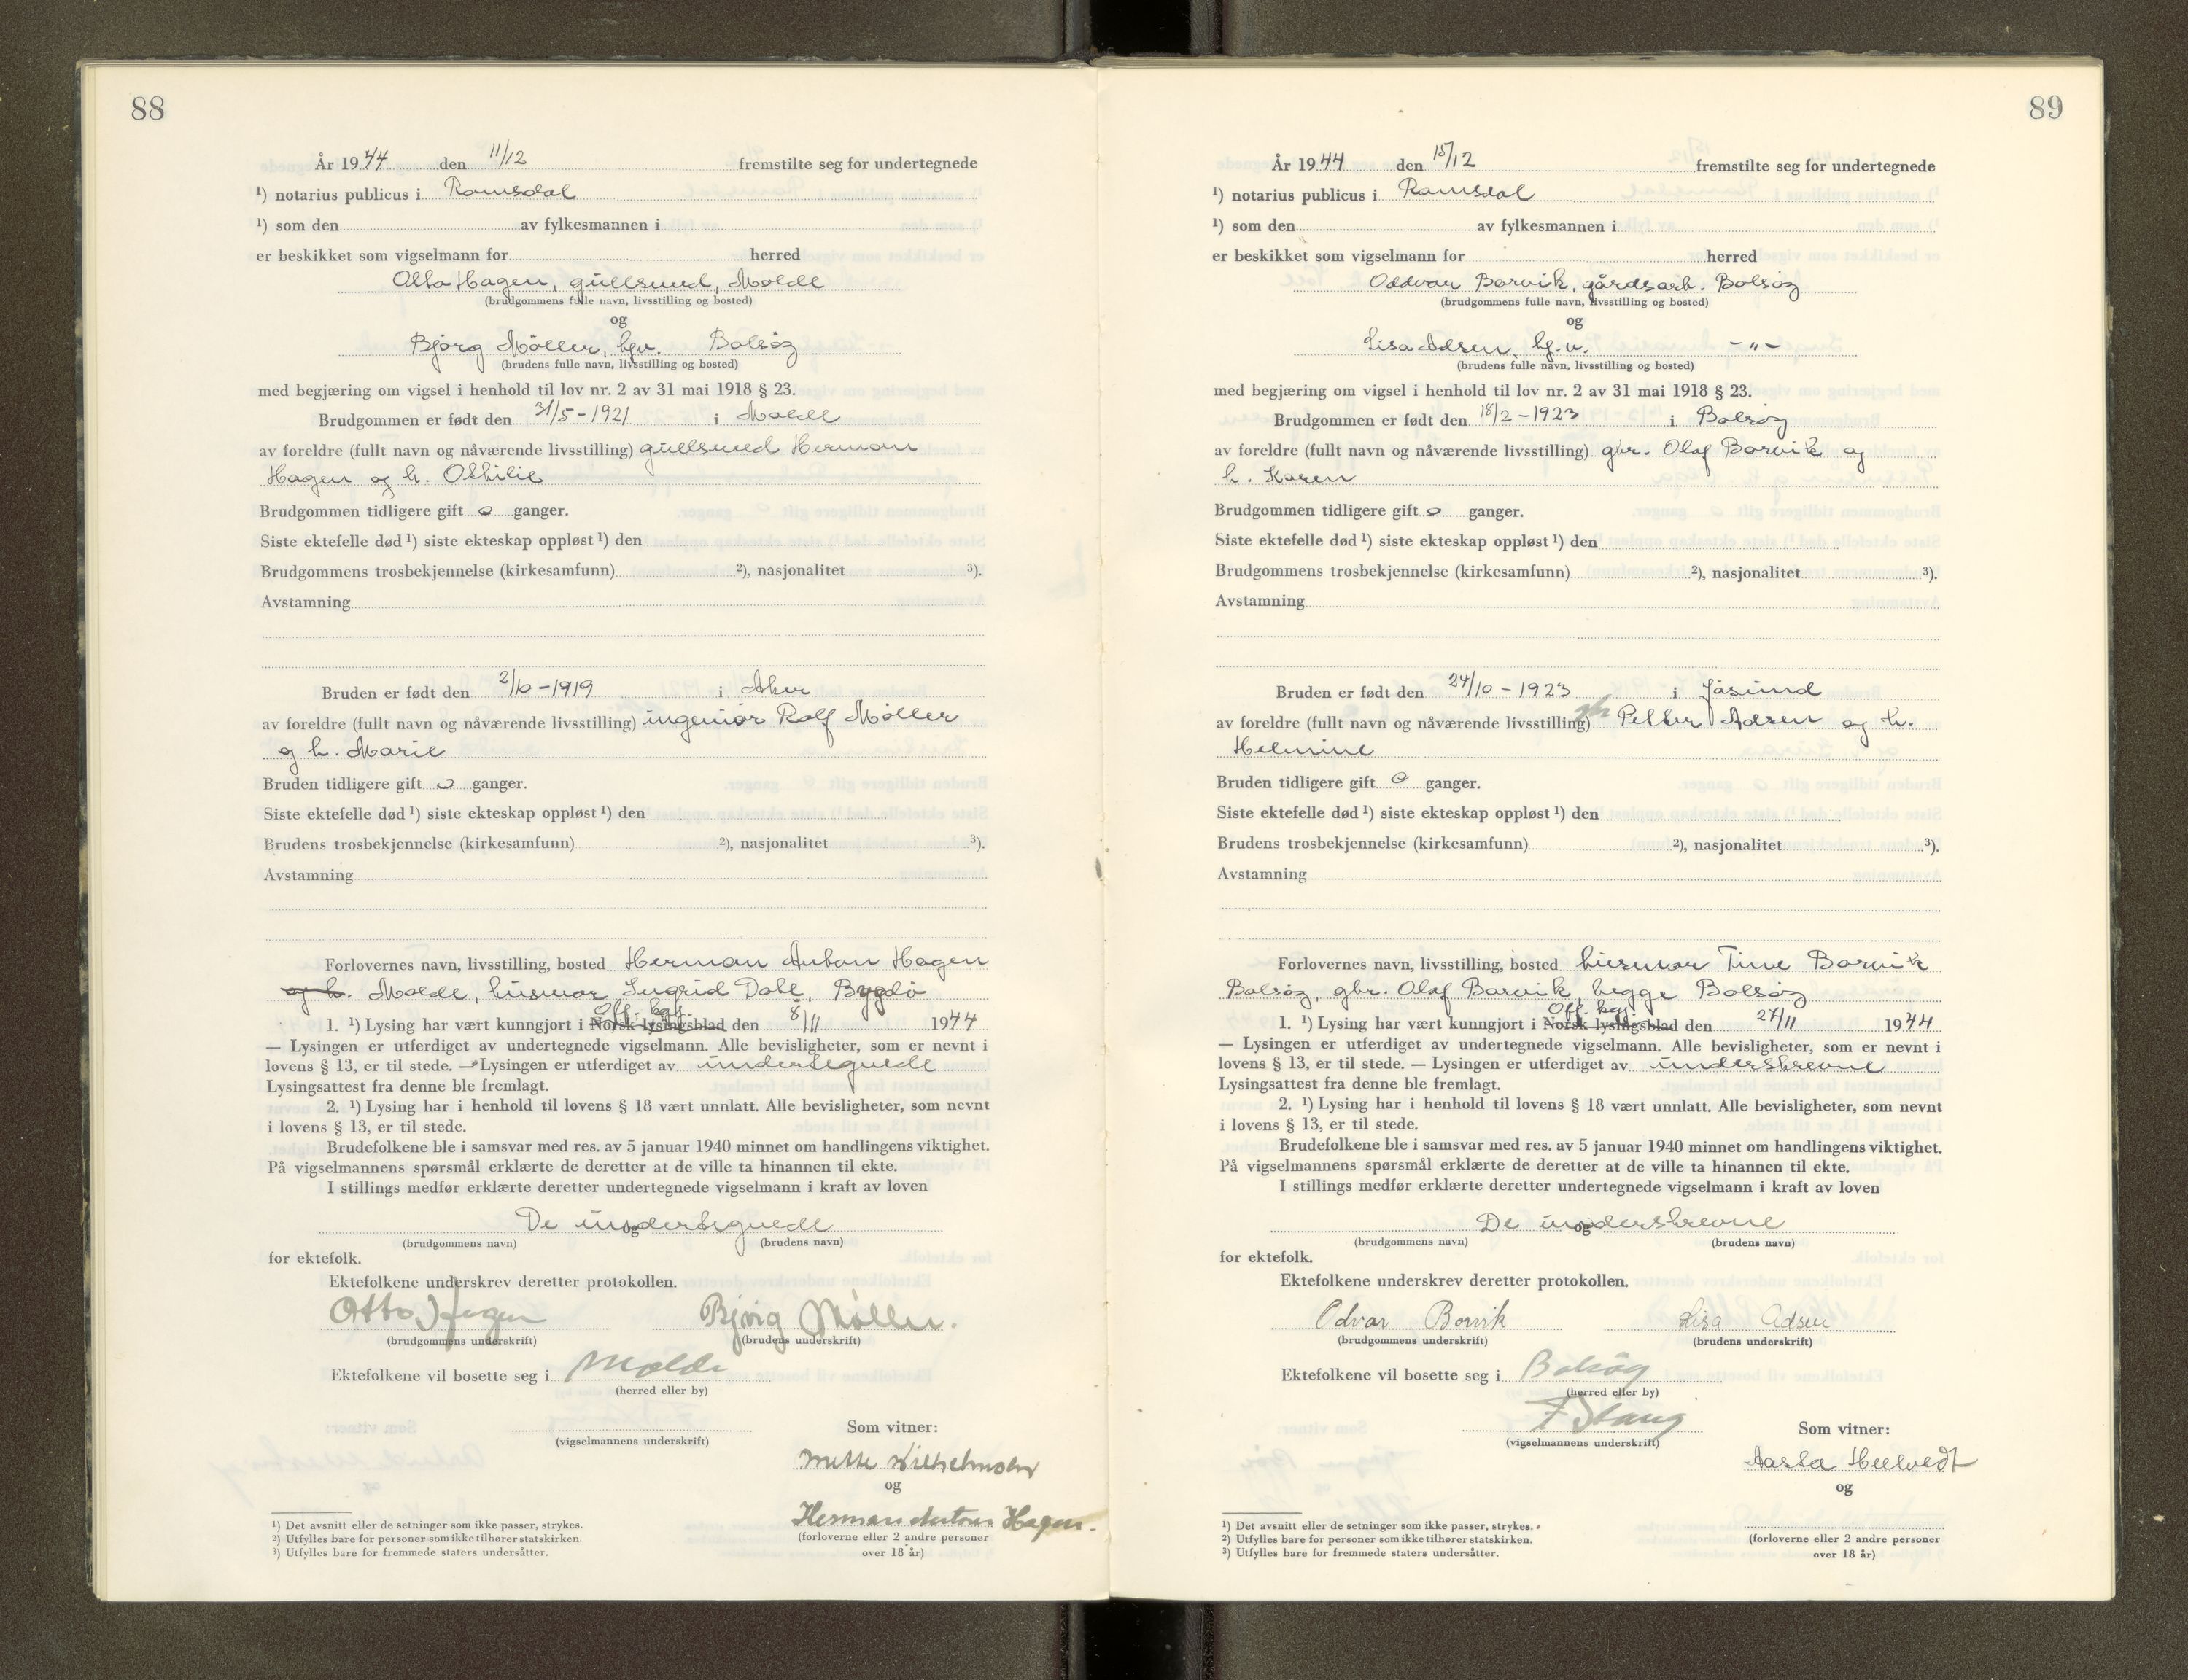 88
År 1944 den 11/12 fremstilte seg for undertegnede
¹) notarius publicus i Romsdal
¹) som den av fylkesmannen i
er beskikket som vigselmann for herred
Otto Hagen, gullsmed, Molde
(brudgommens fulle navn, livsstilling og bosted)
og
Bjørg Møller, hgv. Bolsøy
(brudens fulle navn, livsstilling og bosted)
med begjæring om vigsel i henhold til lov nr. 2 av 31 mai 1918 § 23.
Brudgommen er født den 31/5-1921 i Molde
av foreldre (fullt navn og nåværende livsstilling) gullsmed Herman
Hagen og h. Othilie
Brudgommen tidligere gift o ganger.
Siste ektefelle død ¹) siste ekteskap oppløst ¹) den
Brudgommens trosbekjennelse (kirkesamfunn) ²), nasjonalitet ³).
Avstamning
Bruden er født den 2/10-1919 i Aker
av foreldre (fullt navn og nåværende livsstilling) ingeniør Rolf Møller
og h. Marie
Bruden tidligere gift o ganger.
Siste ektefelle død ¹) siste ekteskap oppløst ¹) den
Brudens trosbekjennelse (kirkesamfunn) ²), nasjonalitet ³).
Avstamning
Forlovernes navn, livsstilling, bosted Herman Anton Hagen
og h. Molde, husmor Ingrid Dahl, Bygdø
Off. kgj.
1. ¹) Lysing har vært kunngjort i Norsk lysingsblad den 8/11 1944
— Lysingen er utferdiget av undertegnede vigselmann. Alle bevisligheter, som er nevnt i
lovens § 13, er til stede. — Lysingen er utferdiget av undertegnede
Lysingsattest fra denne ble fremlagt.
2. ¹) Lysing har i henhold til lovens § 18 vært unnlatt. Alle bevisligheter, som nevnt
i lovens § 13, er til stede.
Brudefolkene ble i samsvar med res. av 5 januar 1940 minnet om handlingens viktighet.
På vigselmannens spørsmål erklærte de deretter at de ville ta hinannen til ekte.
I stillings medfør erklærte deretter undertegnede vigselmann i kraft av loven
De undertegnede
og
(brudgommens navn) (brudens navn)
for ektefolk.
Ektefolkene underskrev deretter protokollen.
Otto Hagen Bjørg Møller.
(brudgommens underskrift) (brudens underskrift)
Ektefolkene vil bosette seg i Molde
(herred eller by)
Som vitner:
(vigselmannens underskrift)
Mette Wilhelmsen
og
Herman Anton Hagen.
(forloverne eller 2 andre personer
over 18 år)
¹) Det avsnitt eller de setninger som ikke passer, strykes.
²) Utfylles bare for personer som ikke tilhører statskirken.
³) Utfylles bare for fremmede staters undersåtter.
89
År 1944 den 15/12 fremstilte seg for undertegnede
¹) notarius publicus i Romsdal
¹) som den av fylkesmannen i
er beskikket som vigselmann for herred
Oddvar Borvik, gårdsarb. Bolsøy
(brudgommens fulle navn, livsstilling og bosted)
og
Lisa Adsen, hg.v. -"-
(brudens fulle navn, livsstilling og bosted)
med begjæring om vigsel i henhold til lov nr. 2 av 31 mai 1918 § 23.
Brudgommen er født den 18/2-1923 i Bolsøy
av foreldre (fullt navn og nåværende livsstilling) gbr. Olaf Borvik og
h. Karen
Brudgommen tidligere gift o ganger.
Siste ektefelle død ¹) siste ekteskap oppløst ¹) den
Brudgommens trosbekjennelse (kirkesamfunn) ²), nasjonalitet ³).
Avstamning
Bruden er født den 24/10-1923 i Jøsund
av foreldre (fullt navn og nåværende livsstilling) gbr Petter Adsen og h.
Helmine
Bruden tidligere gift o ganger.
Siste ektefelle død ¹) siste ekteskap oppløst ¹) den
Brudens trosbekjennelse (kirkesamfunn) ²), nasjonalitet ³).
Avstamning
Forlovernes navn, livsstilling, bosted husmor Tine Borvik
Bolsøy, gbr. Olaf Borvik, begge Bolsøy
Off. kgj.
1. ¹) Lysing har vært kunngjort i Norsk lysingsblad den 27/11 1944
— Lysingen er utferdiget av undertegnede vigselmann. Alle bevisligheter, som er nevnt i
lovens § 13, er til stede. — Lysingen er utferdiget av underskrevne
Lysingsattest fra denne ble fremlagt.
2. ¹) Lysing har i henhold til lovens § 18 vært unnlatt. Alle bevisligheter, som nevnt
i lovens § 13, er til stede.
Brudefolkene ble i samsvar med res. av 5 januar 1940 minnet om handlingens viktighet.
På vigselmannens spørsmål erklærte de deretter at de ville ta hinannen til ekte.
I stillings medfør erklærte deretter undertegnede vigselmann i kraft av loven
De underskrevne
og
(brudgommens navn) (brudens navn)
for ektefolk.
Ektefolkene underskrev deretter protokollen.
Odvar Borvik Lisa Adsen
(brudgommens underskrift) (brudens underskrift)
Ektefolkene vil bosette seg i Bolsøy
(herred eller by)
F Stang
Som vitner:
(vigselmannens underskrift)
Aasta
og
(forloverne eller 2 andre personer
over 18 år)
¹) Det avsnitt eller de setninger som ikke passer, strykes.
²) Utfylles bare for personer som ikke tilhører statskirken.
³) Utfylles bare for fremmede staters undersåtter.